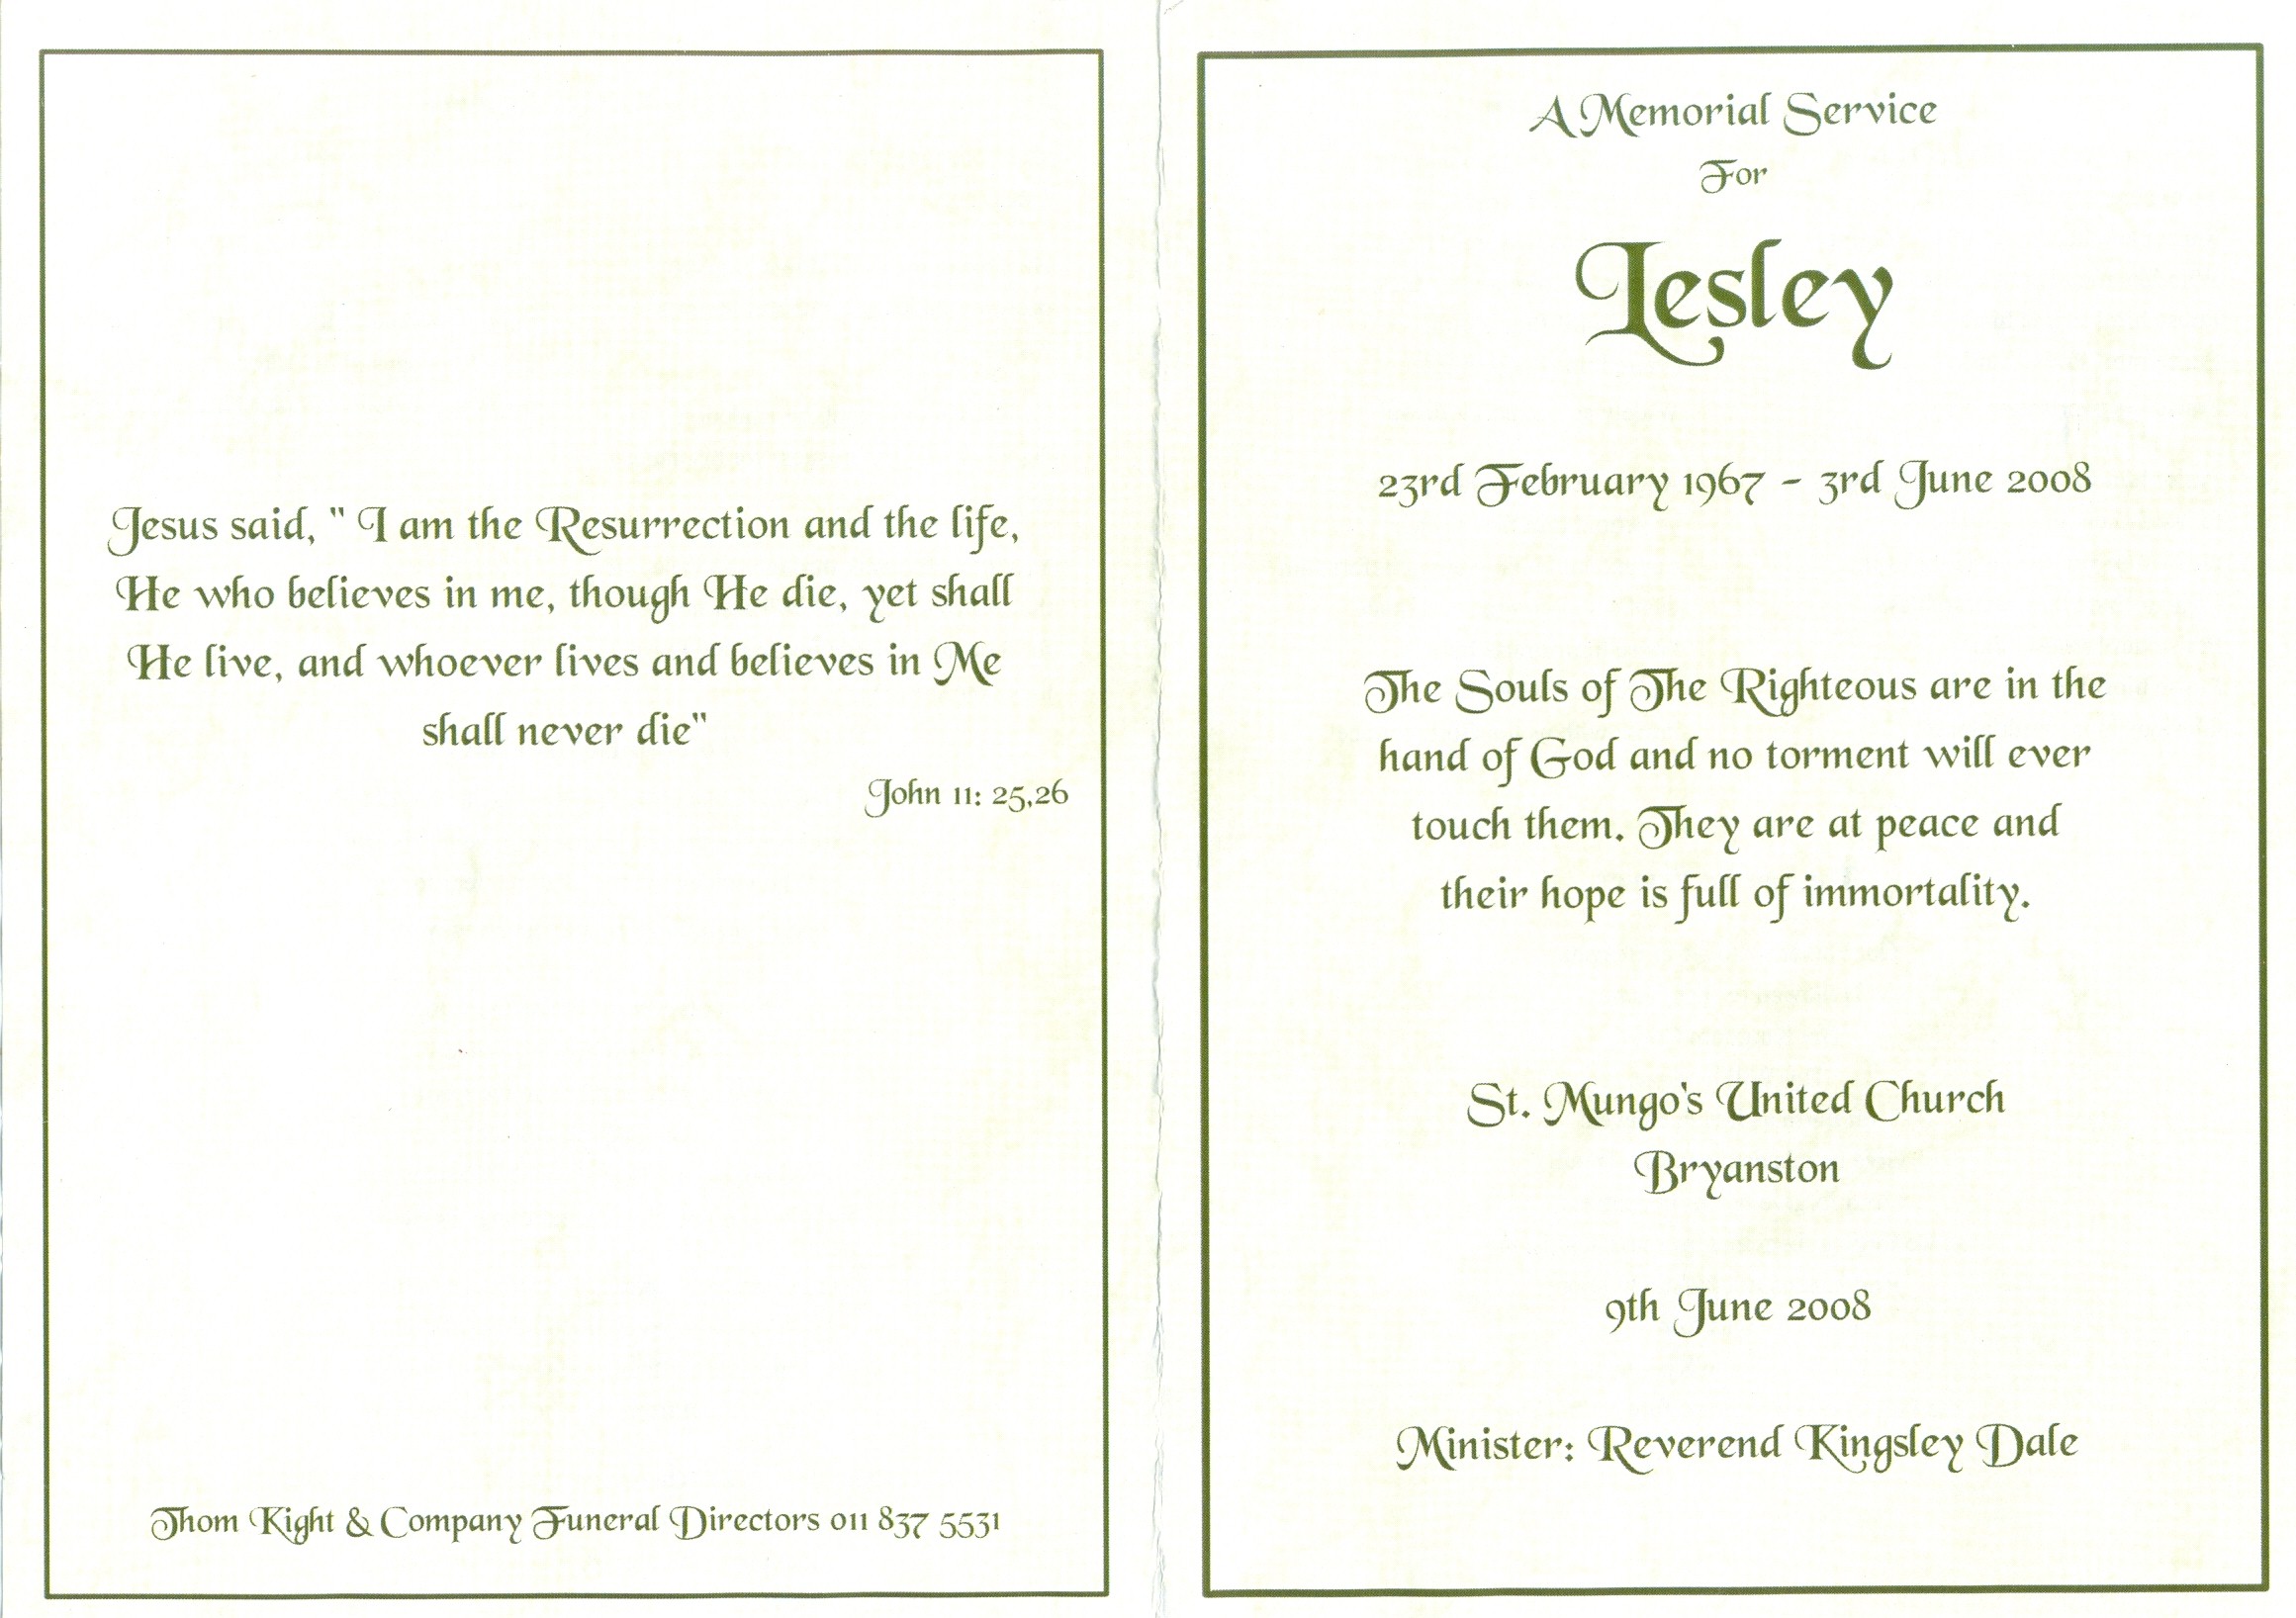 Jesus said, " I am the Resurrection and the life,
He who believes in me, though He die, yet shall
He live, and whoever lives and believes in Me
shall never die"
John 11: 25,26
Thom Kight & Company Funeral Directors 011 837 5531
A Memorial Service
For
Lesley
23rd February 1967 - 3rd June 2008
The Souls of The Righteous are in the
hand of God and no torment will ever
touch them. They are at peace and
their hope is full of immortality.
St. Mungo's United Church
Bryanston
9th June 2008
Minister: Reverend Kingsley Dale